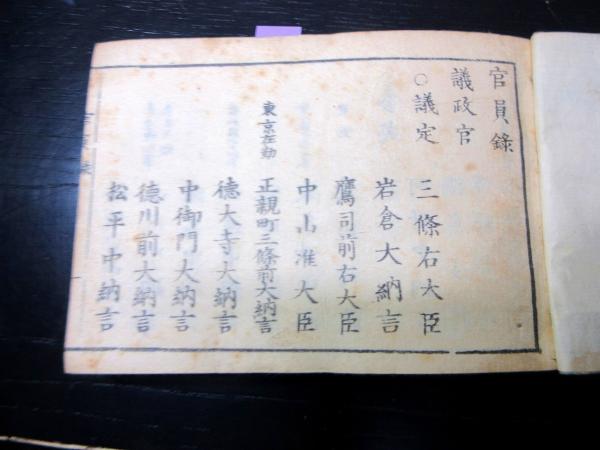 官員錄
議政官
○議定 三條右大臣
岩倉大納言
鷹司前右大臣
中山准大臣
東京在勤 正親町三條前大納言
德大寺大納言
中御門大納言
德川前大納言
松平中納言